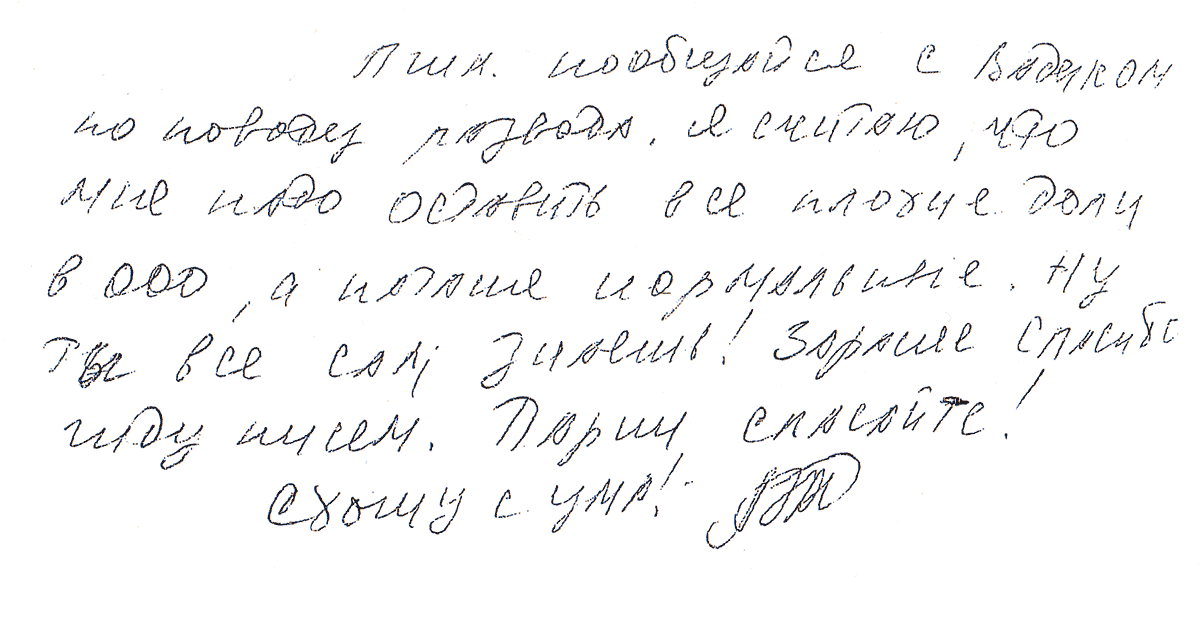 пообщайся с Вадиком
по поводу развода. Я считаю, что
мне надо оставить все плохие доли
в ООО, а Наташе нормальные. Ну
ты все сам знаешь! Заранее спасибо
жду писем. Парни спасайте!
Схожу с ума!